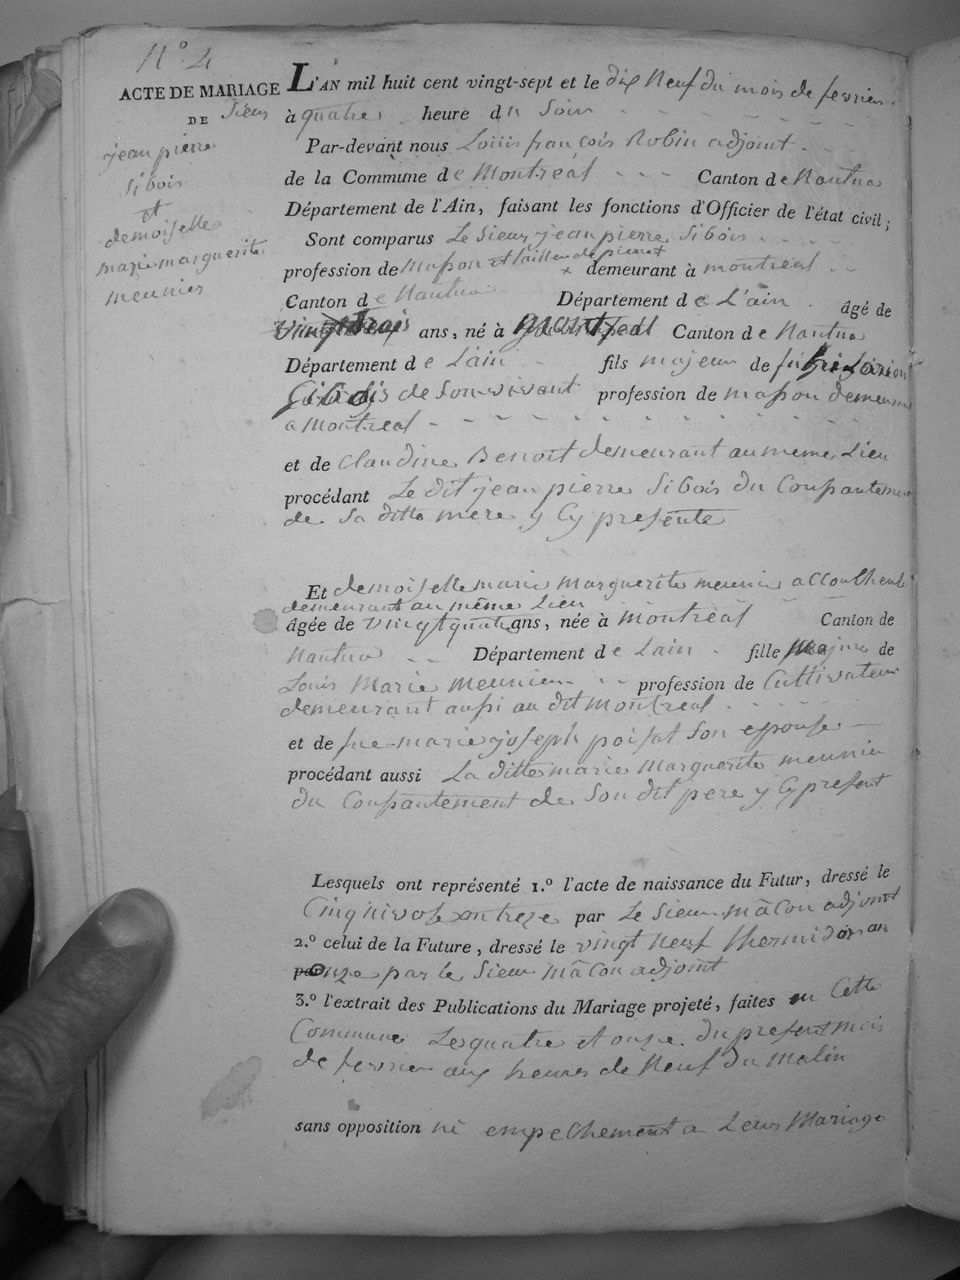 N.º 4
ACTE DE MARIAGE
DE Sieur
jean pierre
Sibois
et
demoiselle
marie marguerite
meunier
L'AN mil huit cent vingt-sept et le dix Neuf du mois de fevrier
à quatre heure du Soir
Par-devant nous Louis françois Robin adjoint
de la Commune de Montréal Canton de Nantua
Département de l'Ain, faisant les fonctions d'Officier de l'état civil;
Sont comparus Le Sieur jean pierre Sibois
profession de Masson et tailleur de pierre demeurant à montréal
Canton de Nantua Département de L'ain âgé de
vingt trois ans, né à Montréal Canton de Nantua
Département de Lain fils majeur de fu
Sibois de Son vivant profession de masson demeurant
a Montréal
et de Claudine Benoit demeurant au même Lieu
procédant Le dit jean pierre Sibois du Consantement
de Sa ditte mere y Cy presente
Et demoiselle marie marguerite meunier
demeurant au même Lieu
âgée de vingt quatre ans, née à Montréal Canton de
Nantua Département de Lain fille Majeure de
Louis Marie meunier profession de Cultivateur
demeurant aussi au dit Montréal
et de fue marie joseph poisat Son epouse
procédant aussi La ditte marie Marguerite meunier
du Consantement de Son dit pere y Cy present
Lesquels ont représenté 1.º l'acte de naissance du Futur, dressé le
Cinq nivose an treze par Le Sieur Mâcon adjoint
2.º celui de la Future, dressé le vingt Neuf thermidor an
onze par le Sieur Mâcon adjoint
3.º l'extrait des Publications du Mariage projeté, faites en Cette
Commune Les quatre et onze du present mois
de fevrier aux heures de Neuf du Matin
sans opposition ni empechement a Leur Mariage